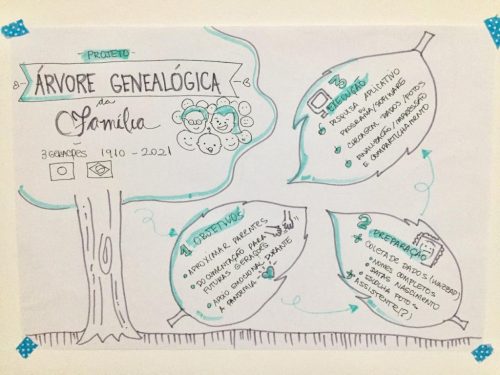 PROJETO
ÁRVORE GENEALÓGICA
da
Família
3 GERAÇÕES 1910 - 2021
1 OBJETIVOS
• APROXIMAR PARENTES
• DOCUMENTAÇÃO PARA
FUTURAS GERAÇÕES
• APOIO EMOCIONAL DURANTE
A PANDEMIA
2 PREPARAÇÃO
COLETA DE DADOS
• NOMES COMPLETOS
• DATAS NASCIMENTO
• ESCOLHA FOTOS
ASSISTENTE(?)
3
EXECUÇÃO
• PESQUISA APLICATIVO
OU
PROGRAMA/SOFTWARE
• CHECAGEM DADOS/FOTOS
• FINALIZAÇÃO/IMPRESSÃO
E COMPARTILHAMENTO